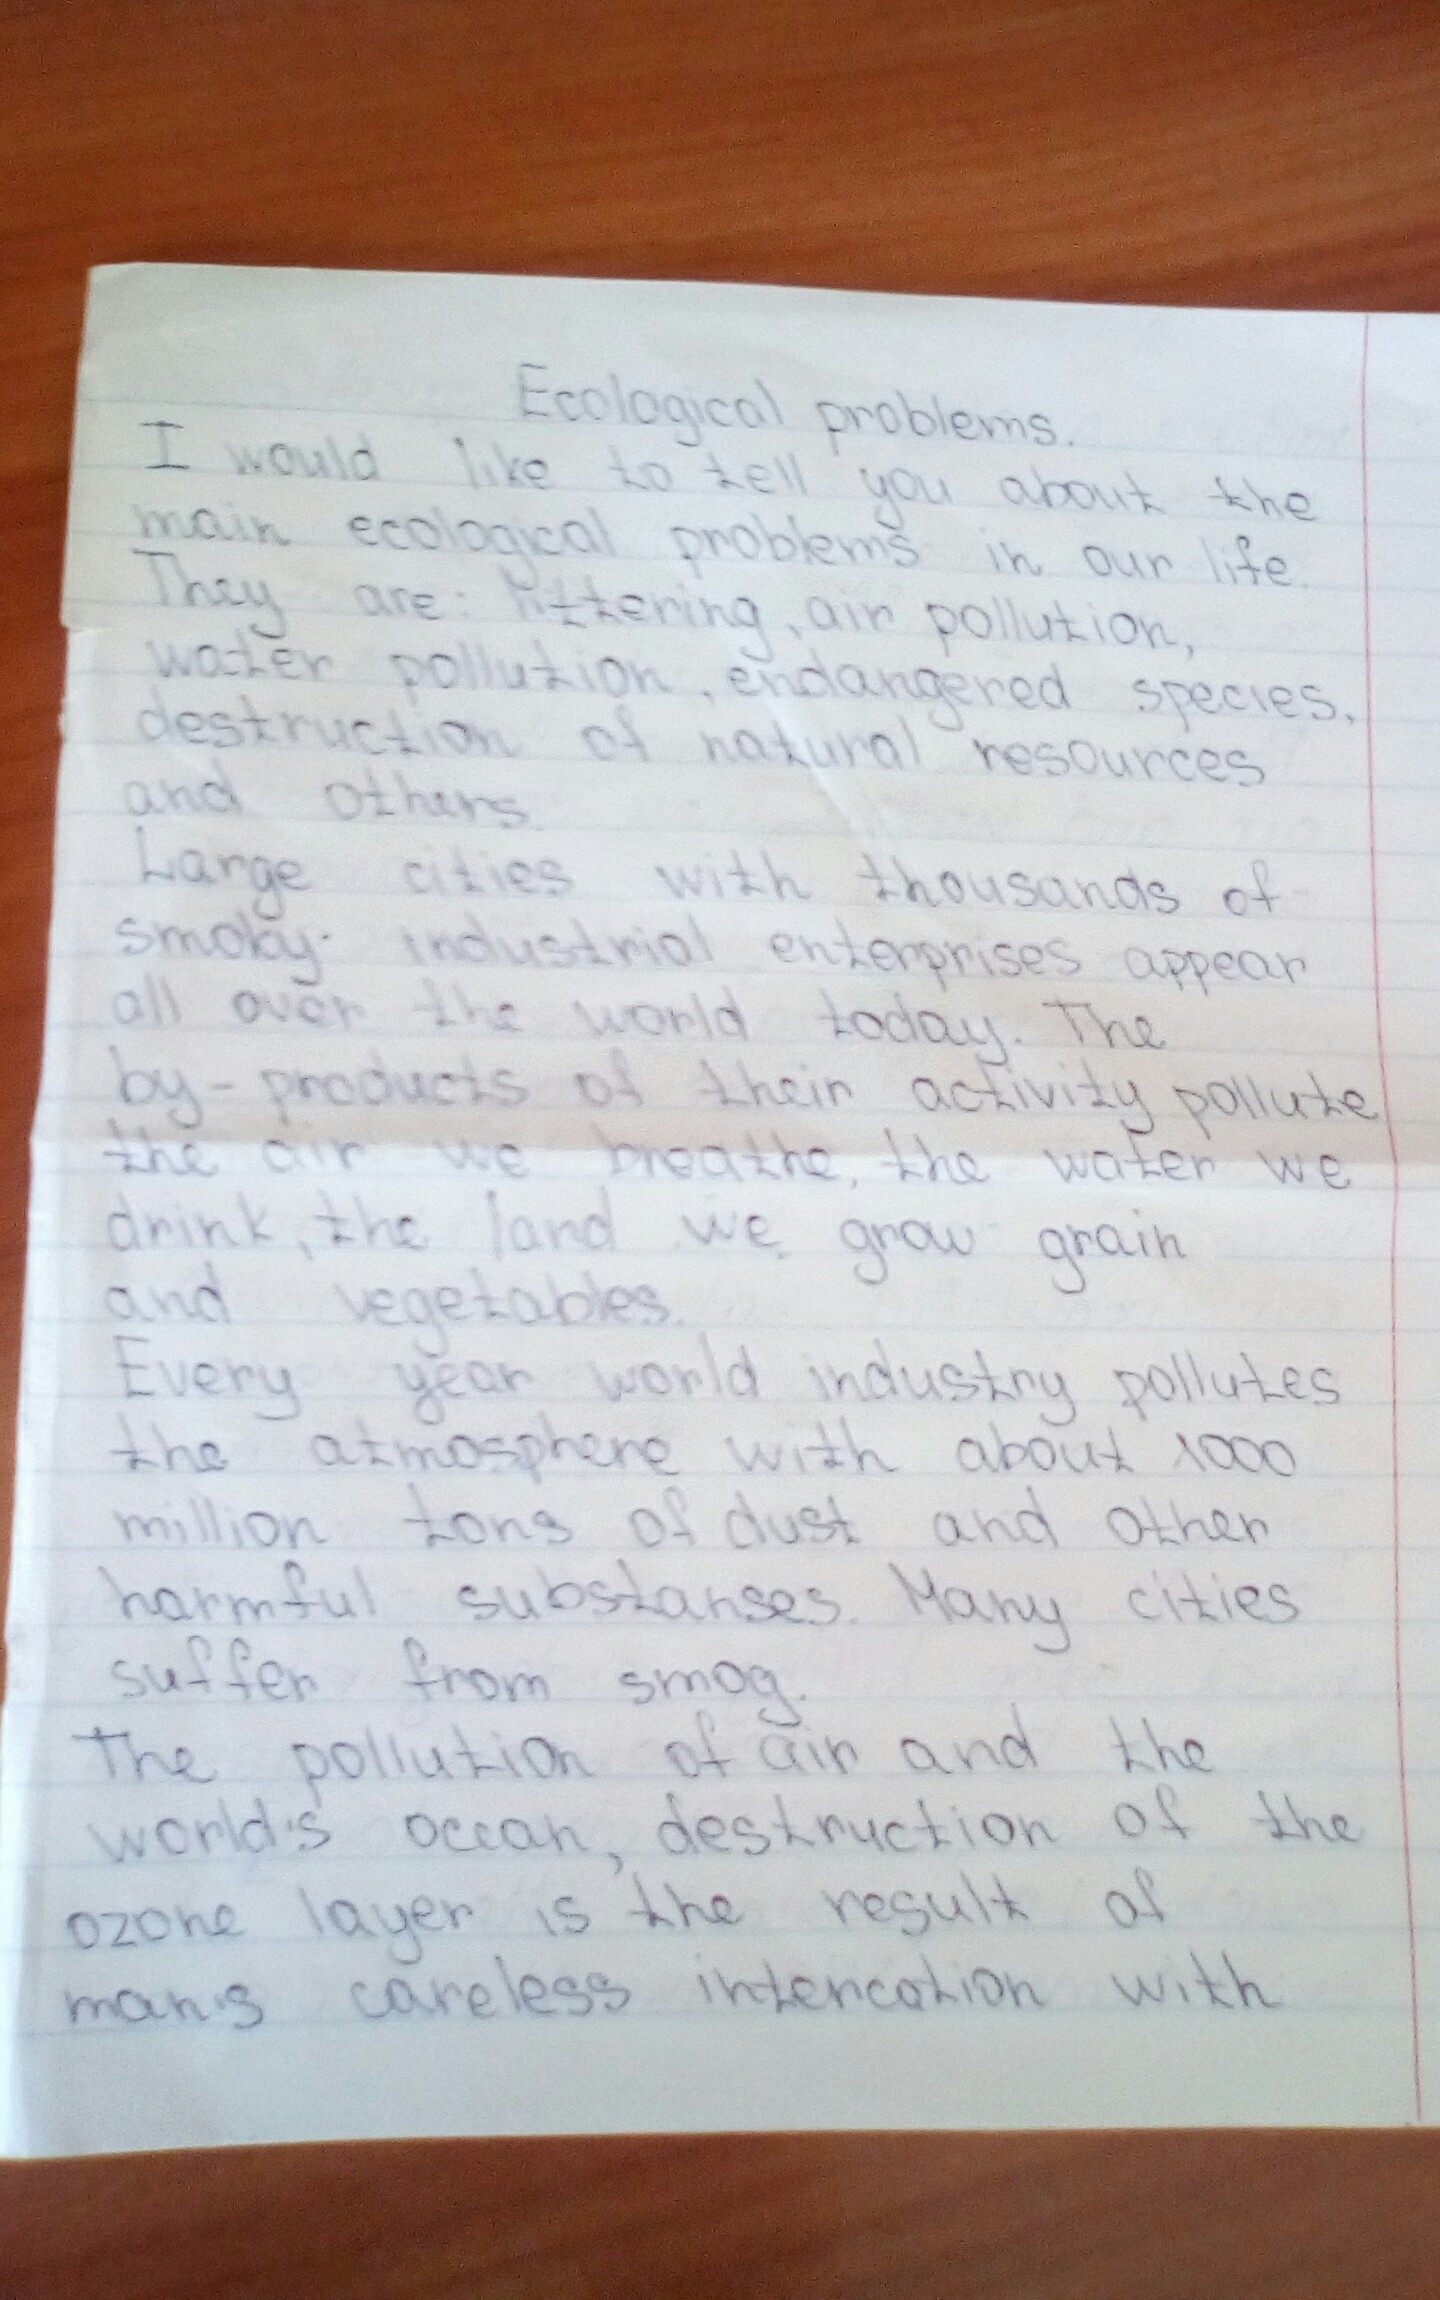 Ecological problems.
I would like to tell you about the
main ecological problems in our life.
They are: littering, air pollution,
water pollution, endangered species,
destruction of natural resources
and others.
Large cities with thousands of
smoky industrial enterprises appear
all over the world today. The
by-products of their activity pollute
the air we breathe, the water we
drink, the land we grow grain
and vegetables.
Every year world industry pollutes
the atmosphere with about 1000
million tons of dust and other
harmful substanses. Many cities
suffer from smog.
The pollution of air and the
world's ocean, destruction of the
ozone layer is the result of
man's careless intercotion with